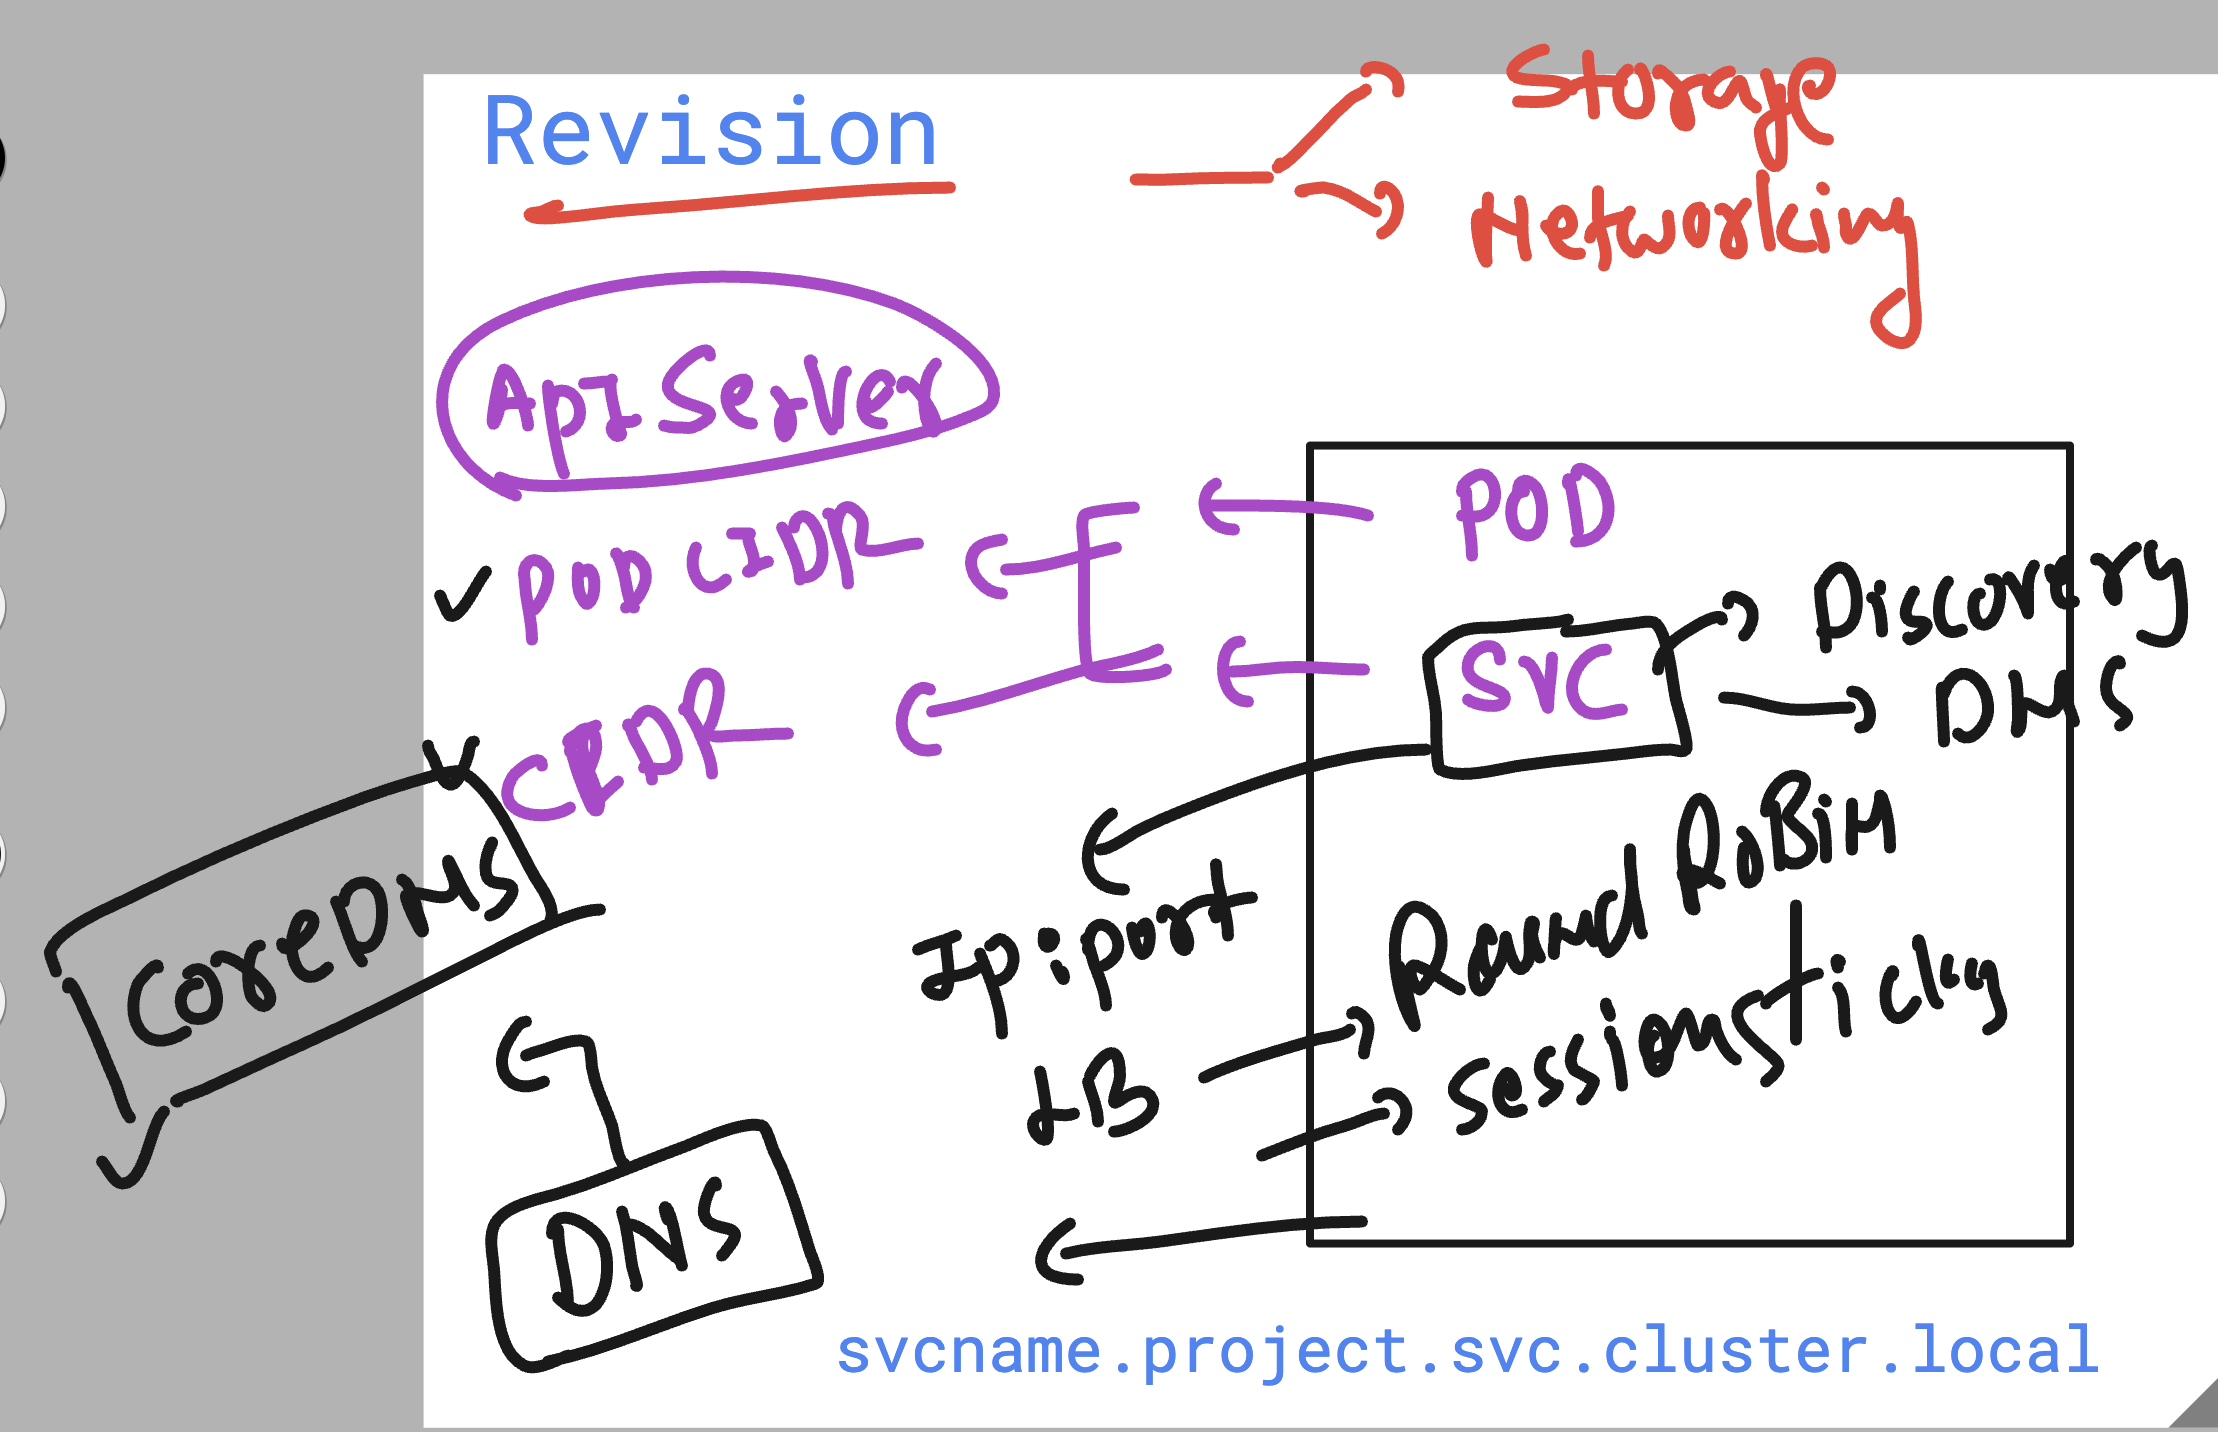 Revision
Storage
Networking
ApI Server
POD CIDR
POD
SVC
Discovery
DNS
CIDR
CoreDNS
Ip:port
LB
Round RoBiN
session sticky
DNS
svcname.project.svc.cluster.local